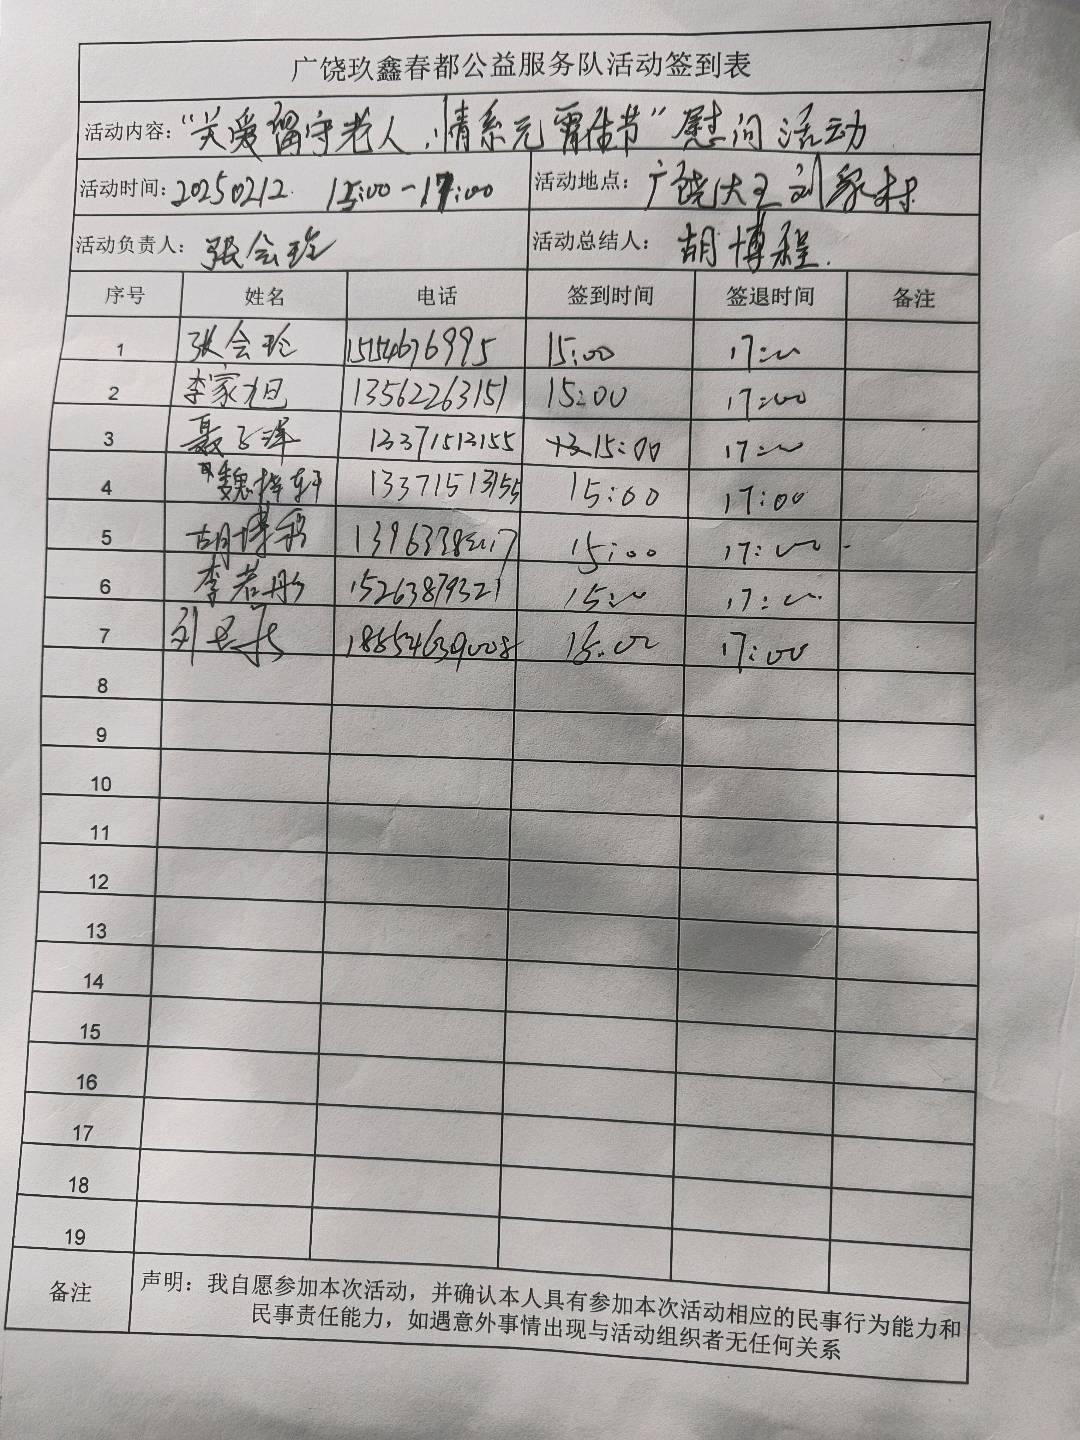 广饶玖鑫春都公益服务队活动签到表
活动内容："关爱留守老人，情系元宵佳节"慰问活动
活动时间：20250212 15:00-17:00 活动地点：广饶大王刘家村
活动负责人：张会玲 活动总结人：胡博程
序号 姓名 电话 签到时间 签退时间 备注
1 张会玲 15154676995 15:00 17:00
2 李家旭 13562263151 15:00 17:00
3 聂子洋 13371513155 15:00 17:00
4 魏梓轩 13371513155 15:00 17:00
5 胡博程 15:00 17:00
6 李若彤 15263879321 15:00 17:00
7 18554639008 15:00 17:00
8
9
10
11
12
13
14
15
16
17
18
19
备注 声明：我自愿参加本次活动，并确认本人具有参加本次活动相应的民事行为能力和
民事责任能力，如遇意外事情出现与活动组织者无任何关系